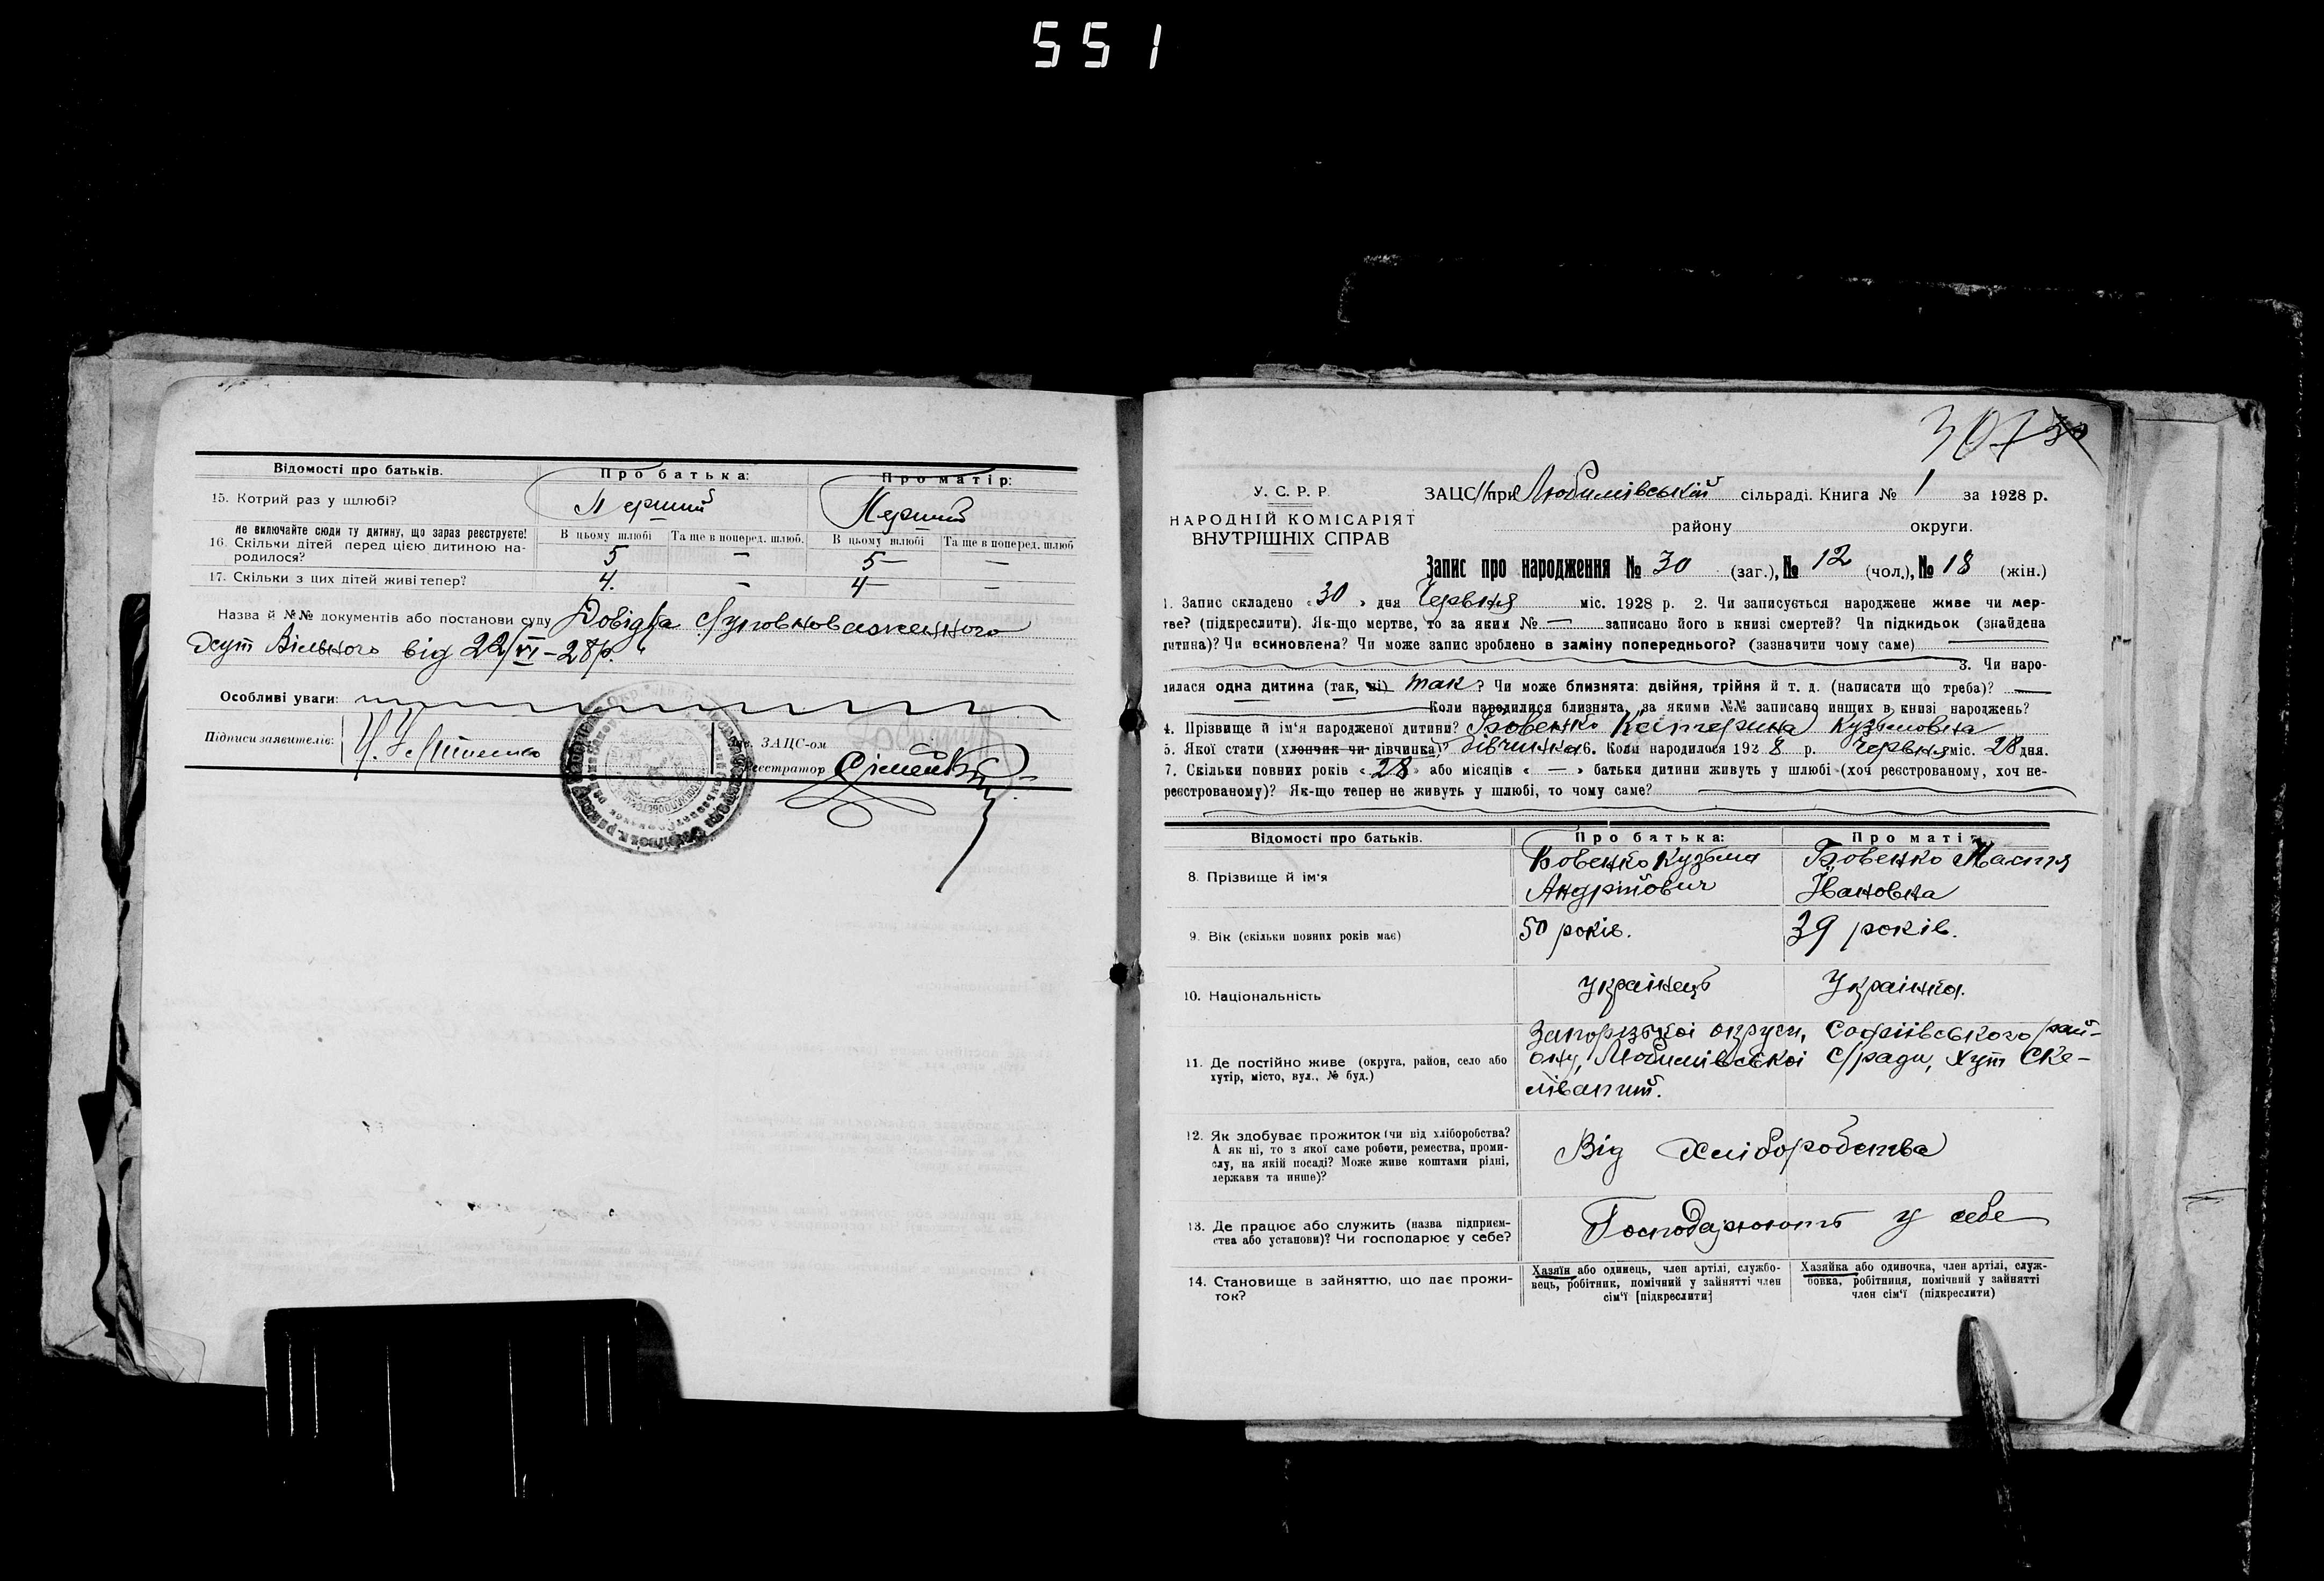 551
Відомості про батьків. Про батька: Про матір:
15. Котрий раз у шлюбі? Перший Перший
не включайте сюди ту дитину, що зараз реєструєте! В цьому шлюбі Та ще в поперед. шлюб. В цьому шлюбі Та ще в поперед. шлюб
16. Скільки дітей перед цією дитиною на-
родилося? 5 — 5 —
17. Скільки з цих дітей живі тепер? 4. — 4 —
Назва й №№ документів або постанови суду Довідка С/уповноваженного
Хут Вільного від 22/VI-28р.
Особливі уваги:
Підписи заявителів:
Зав. ЗАЦС-ом
Реєстратор
307 30
У. С. Р. Р.
НАРОДНІЙ КОМІСАРІЯТ
ВНУТРІШНІХ СПРАВ
ЗАЦС при Любимівській сільраді. Книга № 1 за 1928 р.
району округи.
Запис про народження № 30 (заг.), № 12 (чол.), № 18 (жін.)
1. Запис складено «30» дня Червня міс. 1928 р. 2. Чи записується народжене живе чи мер-
тве? (підкреслити). Як-що мертве, то за яким № — записано його в книзі смертей? Чи підкидьок (знайдена
дитина)? Чи всиновлена? Чи може запис зроблено в заміну попереднього? (зазначити чому саме)
3. Чи наро-
дилася одна дитина (так, ні) так? Чи може близнята: двійня, трійня й т. д. (написати що треба)? —
Коли народилися близнята, за якими №№ записано инщих в книзі народжень?
4. Прізвище й ім'я народженої дитини? Бовенко Катерина Кузьмовна
5. Якої стати (хлопчик чи дівчинка)? дівчинка 6. Коли народилося 1928 р. Червня міс. 28 дня.
7. Скільки повних років «28» або місяців «—» батьки дитини живуть у шлюбі (хоч реєстрованому, хоч не-
реєстрованому)? Як-що тепер не живуть у шлюбі, то чому саме?
Відомості про батьків. Про батька: Про матір:
8. Прізвище й ім'я Бовенко Кузьма Бовенко Настя
Андрійович Івановна
9. Вік (скільки повних років має) 50 років. 39 років.
10. Національність Українець Українка.
11. Де постійно живе (округа, район, село або
хутір, місто, вул., № буд.)
Запорізької округи, Софіівського рай-
ону, Любимівської С/ради, Хут Ске-
12. Як здобуває прожиток (чи від хліборобства?
А як ні, то з якої саме роботи, ремества, проми-
слу, на якій посаді? Може живе коштами рідні,
держави та инше)?
Від Хліборобства
13. Де працює або служить (назва підприєм-
ства або установи)? Чи господарює у себе?
Господарюють у себе
14. Становище в зайняттю, що дає прожи-
ток?
Хазяїн або одинець, член артілі, службо-
вець, робітник, помічний у зайнятті член
сім'ї [підкреслити]
Хазяйка або одиночка, член артілі, служ-
бовка, робітниця, помічний у зайнятті
член сім'ї (підкреслити)